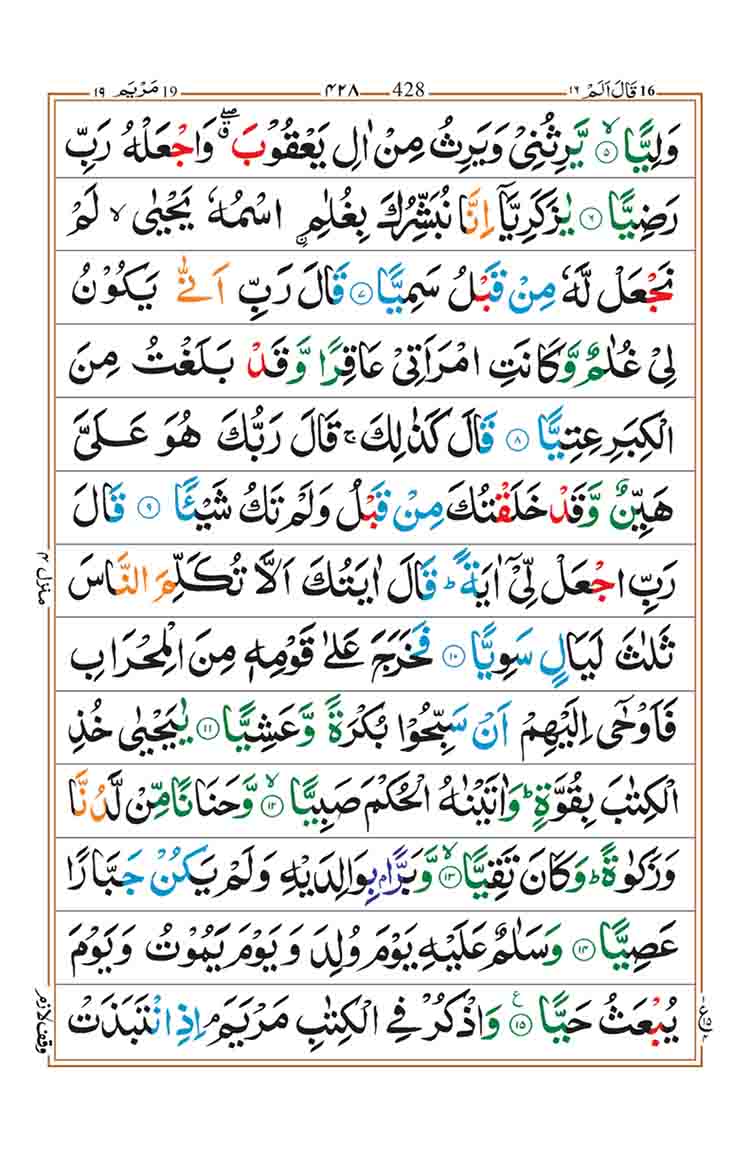 16 قَالَ اَلَمْ ١٦ 428 ۴۲۸ 19 مَرْيَم ١٩
وَلِيًّا ۙ﴿۵﴾ يَّرِثُنِيْ وَيَرِثُ مِنْ اٰلِ يَعْقُوْبَ ۖۗ وَاجْعَلْهُ رَبِّ
رَضِيًّا ﴿۶﴾ يٰزَكَرِيَّاۤ اِنَّا نُبَشِّرُكَ بِغُلٰمِ ۨاسْمُهٗ يَحْيٰى ۙ لَمْ
نَجْعَلْ لَّهٗ مِنْ قَبْلُ سَمِيًّا ﴿۷﴾ قَالَ رَبِّ اَنّٰى يَكُوْنُ
لِيْ غُلٰمٌ وَّكَانَتِ امْرَاَتِيْ عَاقِرًا وَّقَدْ بَلَغْتُ مِنَ
الْكِبَرِ عِتِيًّا ﴿۸﴾ قَالَ كَذٰلِكَ ۚ قَالَ رَبُّكَ هُوَ عَلَيَّ
هَيِّنٌ وَّقَدْ خَلَقْتُكَ مِنْ قَبْلُ وَلَمْ تَكُ شَيْـًٔا ﴿۹﴾ قَالَ
رَبِّ اجْعَلْ لِّيْۤ اٰيَةً ؕ قَالَ اٰيَتُكَ اَلَّا تُكَلِّمَ النَّاسَ
ثَلٰثَ لَيَالٍ سَوِيًّا ﴿۱۰﴾ فَخَرَجَ عَلٰى قَوْمِهٖ مِنَ الْمِحْرَابِ
فَاَوْحٰۤى اِلَيْهِمْ اَنْ سَبِّحُوْا بُكْرَةً وَّعَشِيًّا ﴿۱۱﴾ يٰيَحْيٰى خُذِ
الْكِتٰبَ بِقُوَّةٍ ؕ وَاٰتَيْنٰهُ الْحُكْمَ صَبِيًّا ۙ﴿۱۲﴾ وَّحَنَانًا مِّنْ لَّدُنَّا
وَزَكٰوةً ؕ وَكَانَ تَقِيًّا ۙ﴿۱۳﴾ وَّبَرًّاۢ بِوَالِدَيْهِ وَلَمْ يَكُنْ جَبَّارًا
عَصِيًّا ﴿۱۴﴾ وَسَلٰمٌ عَلَيْهِ يَوْمَ وُلِدَ وَيَوْمَ يَمُوْتُ وَيَوْمَ
يُبْعَثُ حَيًّا ﴿۱۵﴾ ع وَاذْكُرْ فِي الْكِتٰبِ مَرْيَمَ ۘ اِذِ انْتَبَذَتْ
منزل ۴
وقف لازم